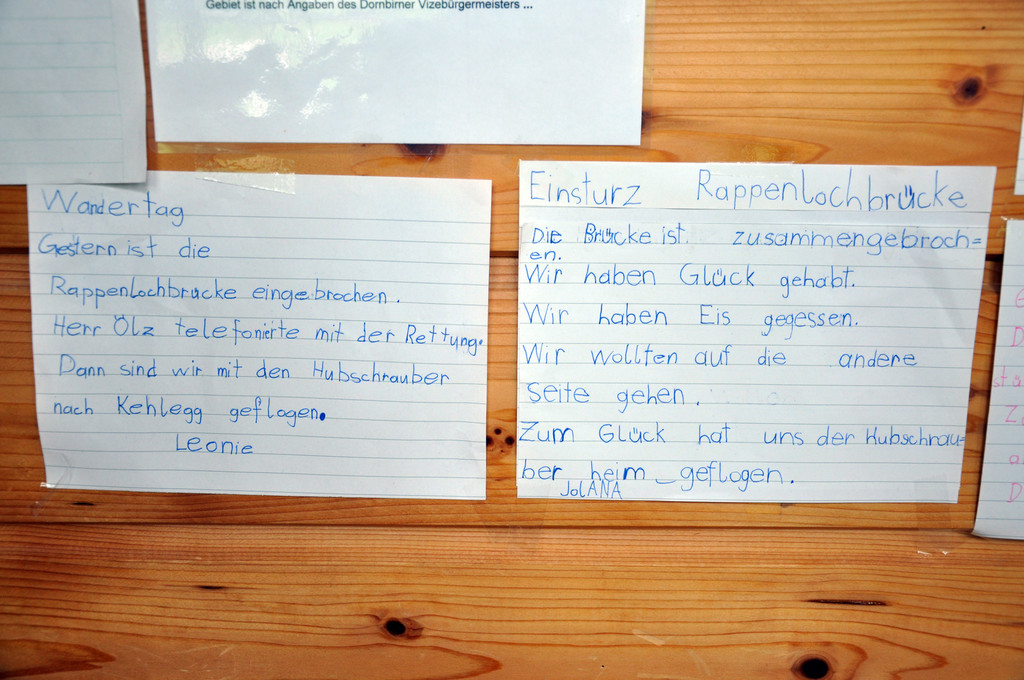 Gebiet ist nach Angaben des Dornbirner Vizebürgermeisters ...
Wandertag
Gestern ist die
Rappenlochbrücke eingebrochen.
Herr Ölz telefonierte mit der Rettung.
Dann sind wir mit den Hubschrauber
nach Kehlegg geflogen.
Leonie
Einsturz Rappenlochbrücke
Die Brücke ist zusammengebroch=
en.
Wir haben Glück gehabt.
Wir haben Eis gegessen.
Wir wollten auf die andere
Seite gehen.
Zum Glück hat uns der Hubschrau=
ber heim geflogen.
JolANA